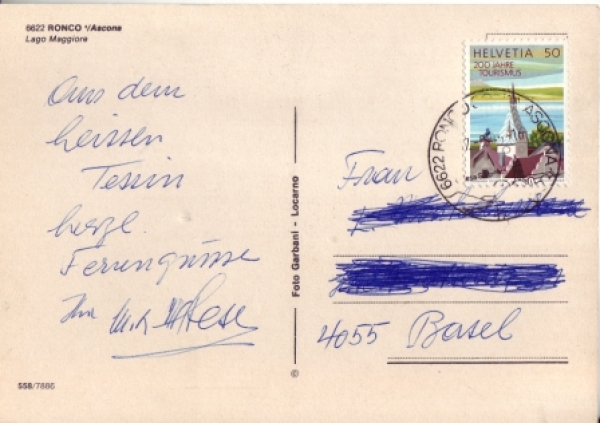 6622 RONCO s/Ascona
Lago Maggiore
Aus dem
heissen
Tessin
herzl.
Feriengrüsse
Ihr
HELVETIA 50
200 JAHRE
TOURISMUS
6622 RONCO S. ASCONA
Frau
4055 Basel
Foto Garbani - Locarno
©
558/7886